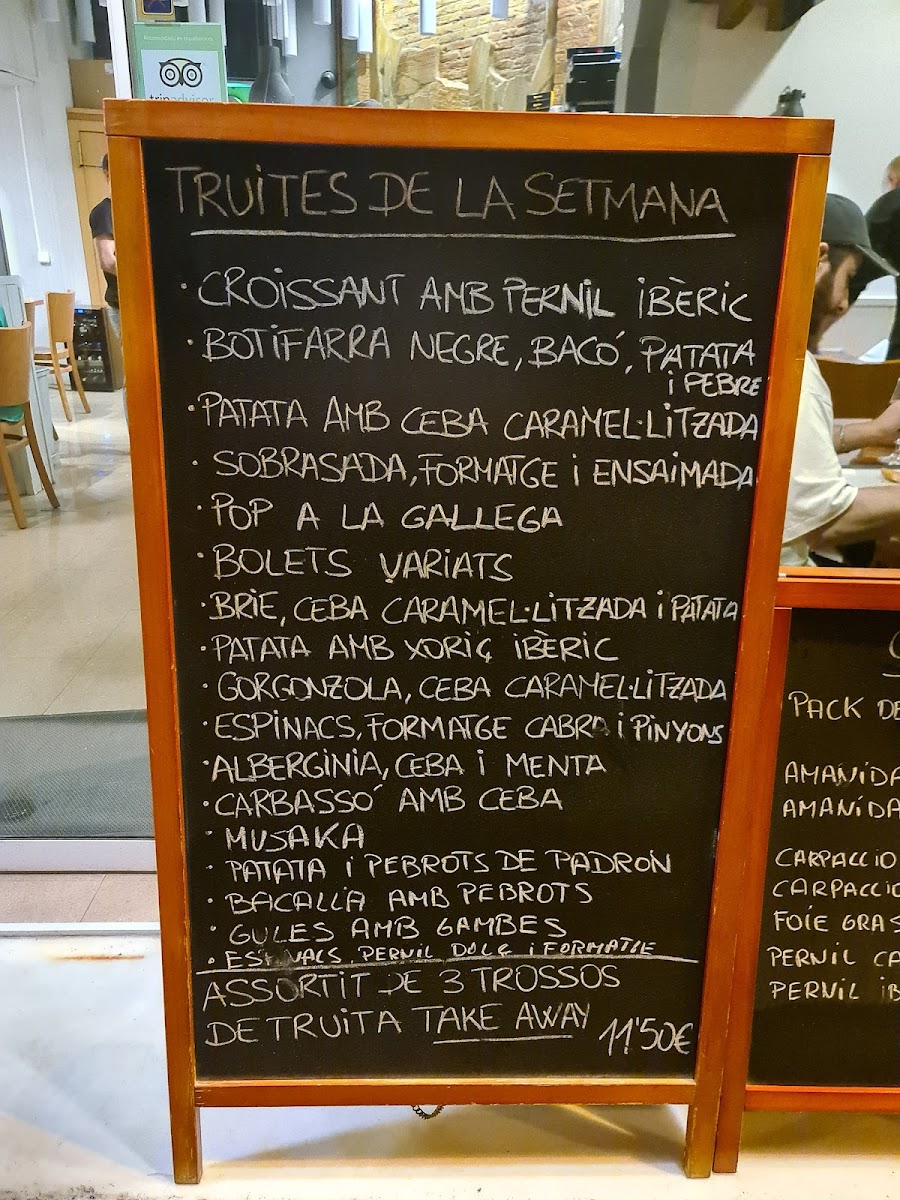 Recomanats en tripadvisor
tripadvisor
TRUITES DE LA SETMANA
· CROISSANT AMB PERNIL IBÈRIC
· BOTIFARRA NEGRE, BACÓ, PATATA
i PEBRE
· PATATA AMB CEBA CARAMEL·LITZADA
· SOBRASADA, FORMATGE i ENSAIMADA
· POP A LA GALLEGA
· BOLETS VARIATS
· BRIE, CEBA CARAMEL·LITZADA i PATATA
· PATATA AMB XORIÇ IBÈRIC
· GORGONZOLA, CEBA CARAMEL·LITZADA
· ESPINACS, FORMATGE CABRA i PINYONS
· ALBERGINIA, CEBA i MENTA
· CARBASSÓ AMB CEBA
· MUSAKA
· PATATA I PEBROTS DE PADRON
· BACALLÀ AMB PEBROTS
· GULES AMB GAMBES
· ESPINACS, PERNIL DOLÇ i FORMATGE
ASSORTIT DE 3 TROSSOS
DE TRUITA TAKE AWAY 11'50€
PACK DE
AMANIDA
AMANIDA
CARPACCIO
CARPACCIO
FOIE GRAS
PERNIL CA
PERNIL IB